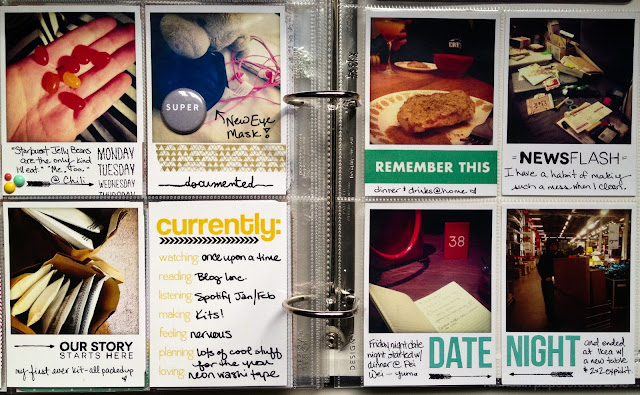 "Starburst Jelly Beans
are the only kind
I'll eat." "Me, Too."
@ Chili
MONDAY
TUESDAY
WEDNESDAY
THURSDAY
SUPER
New Eye
Mask!
documented
REMEMBER THIS
dinner & drinks @ home
NEWSFLASH
I have a habit of making
such a mess when I clean.
OUR STORY
STARTS HERE
my first ever kit-all packed up
currently:
watching once upon a time
reading Blog
listening Spotify Jan/Feb
making Kits!
feeling nervous
planning lots of cool stuff
for the year
loving neon washi tape
38
Friday night date
night started w/
dinner @ Pei
Wei - yuma
DATE
NIGHT
and ended
at Ikea w/
a new table
& 2x2 expidit